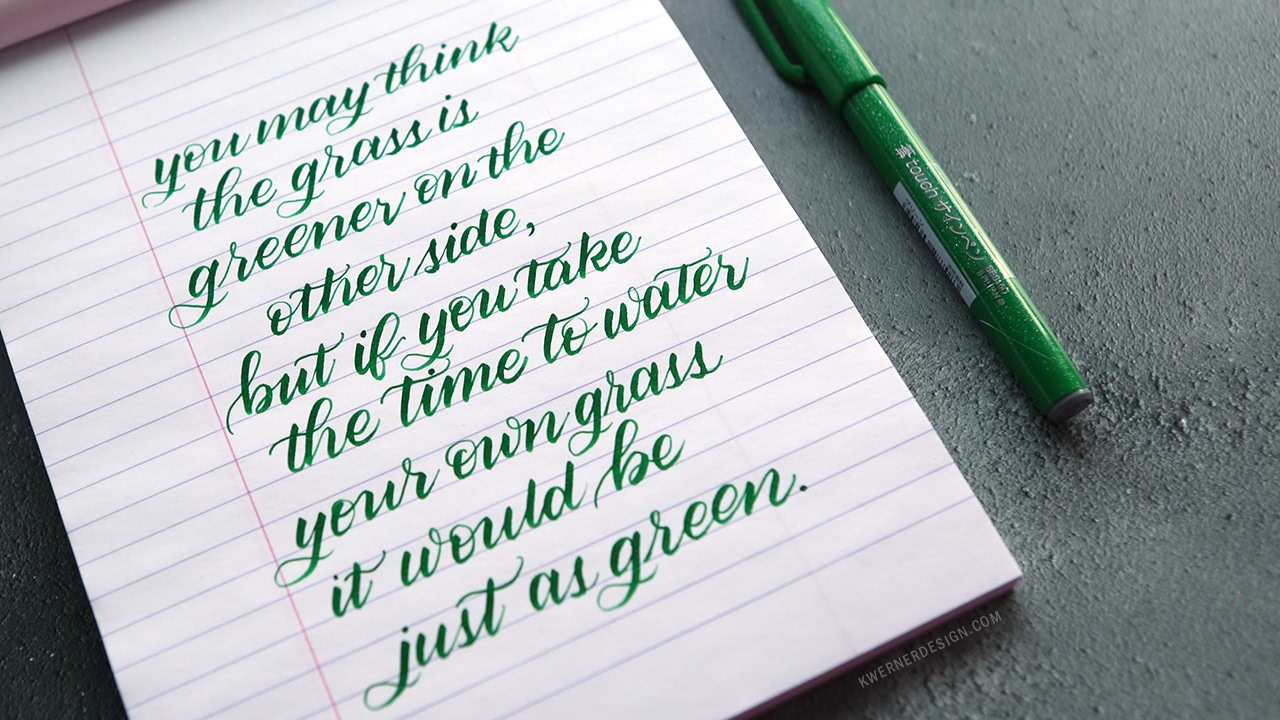 you may think
the grass is
greener on the
other side,
but if you take
the time to water
your own grass
it would be
just as green.
筆touch サインペン
KWERNERDESIGN.COM